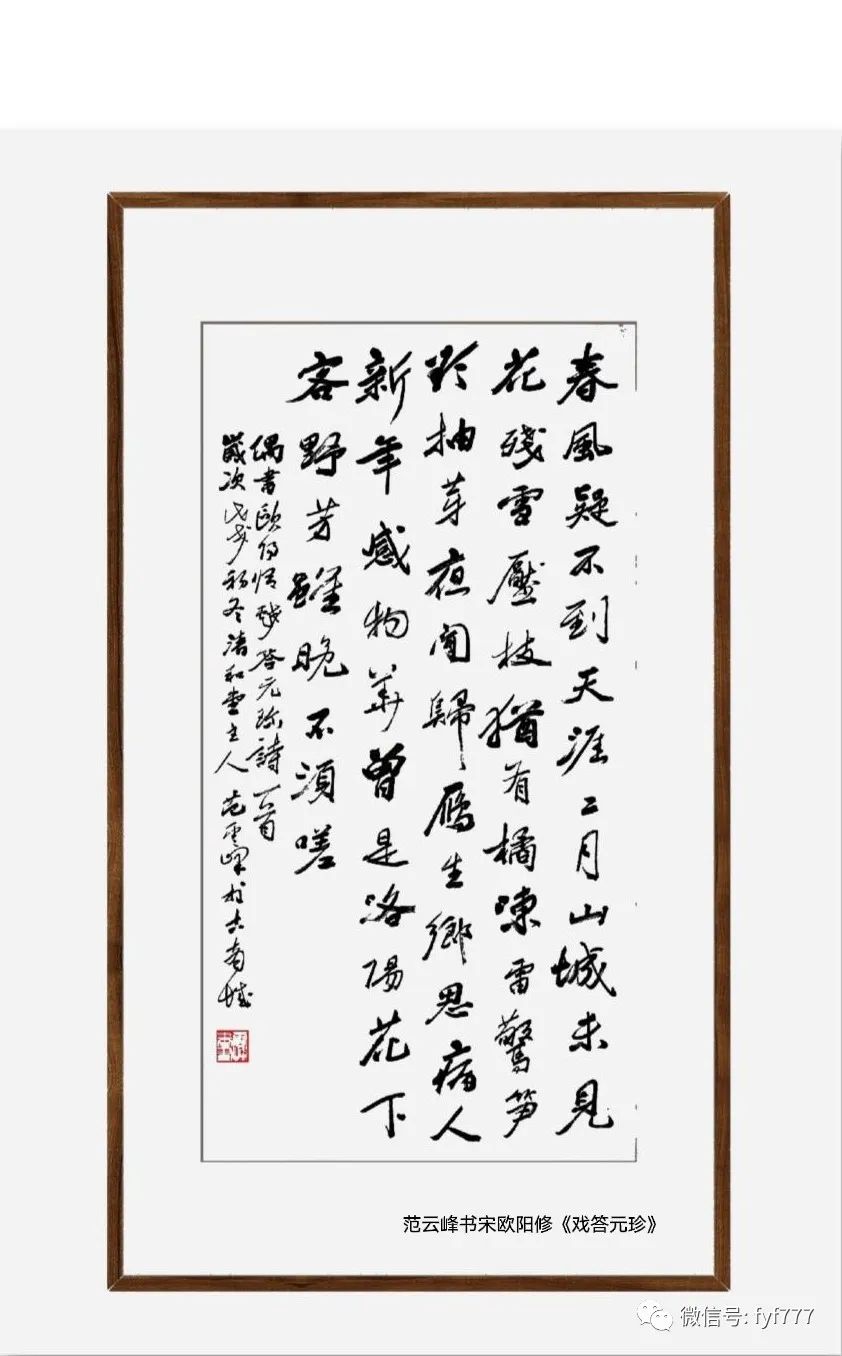 春風疑不到天涯二月山城未見
花殘雪壓枝猶有橘凍雷驚笋
欲抽芽夜聞歸鴈生鄉思病人
新年感物華曾是洛陽花下
客野芳雖晚不須嗟
偶書歐陽脩戲答元珍詩一首
歲次戊戌初冬清和堂主人范雲峰於古城
范云峰书宋欧阳修《戏答元珍》
微信号: fyf777